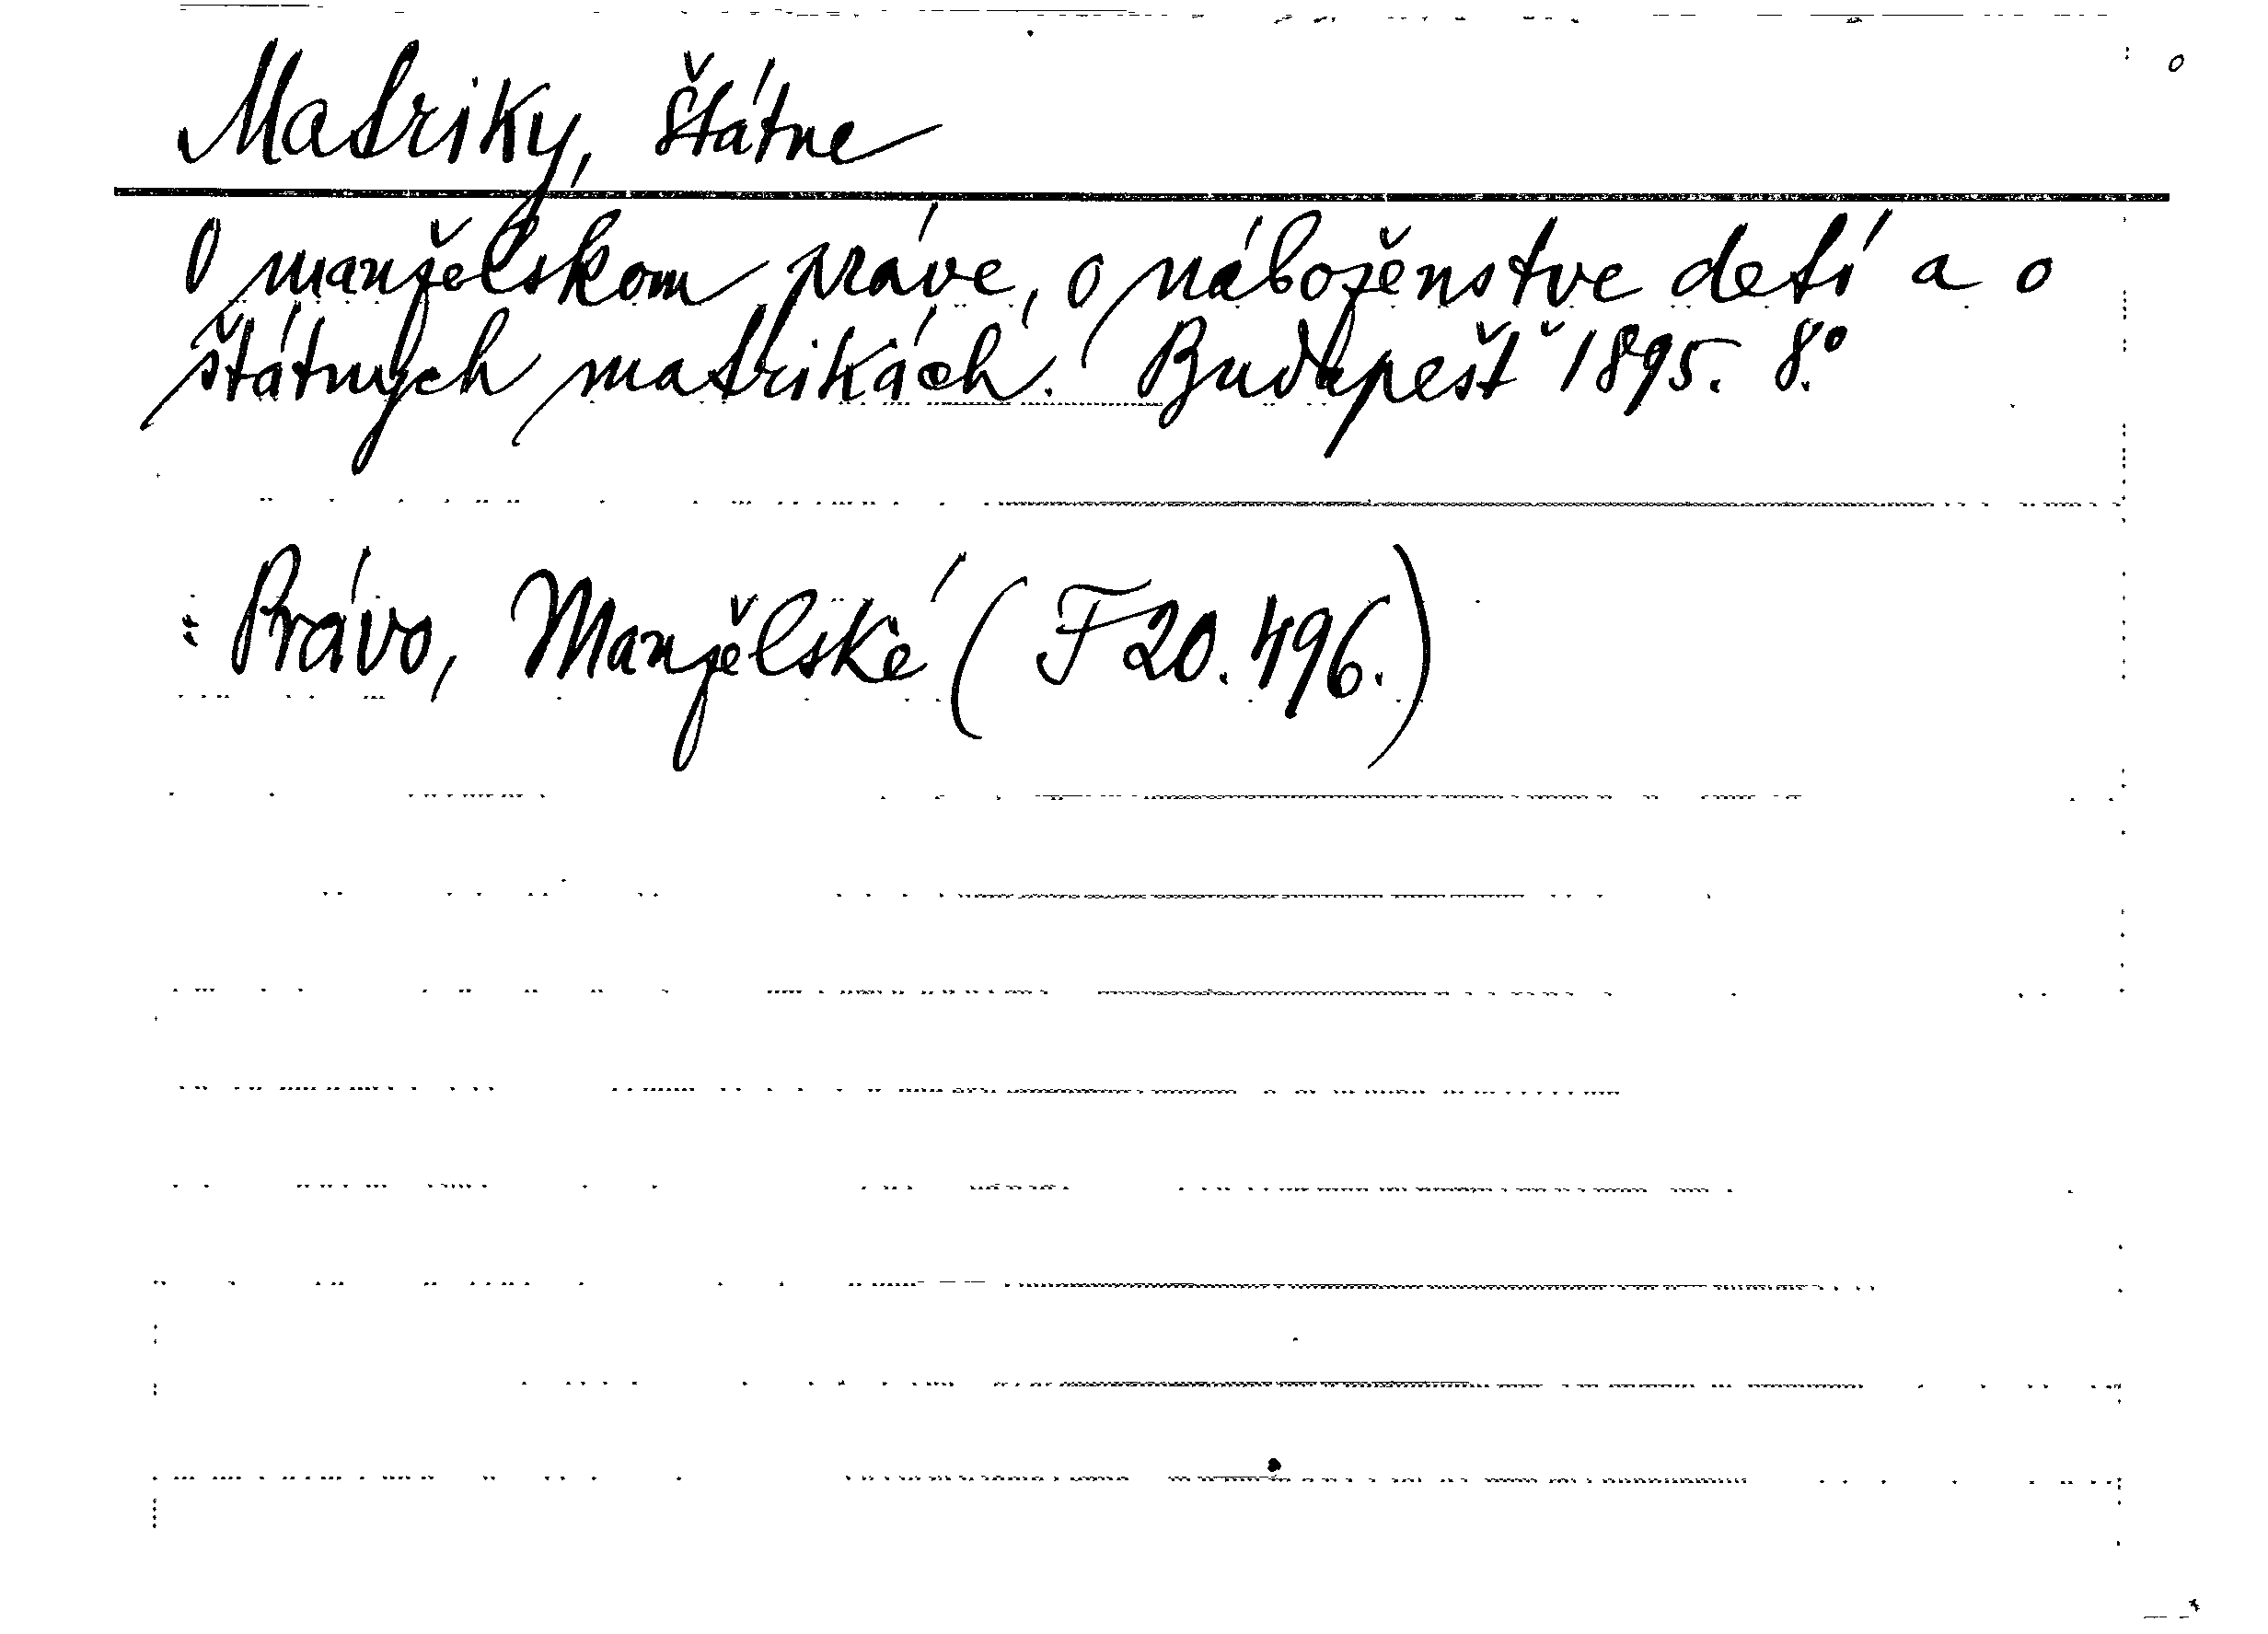 Matriky, štátne
O manželskom práve, o náboženstve detí a o
štátnych matrikách. Budapešť 1895. 8.°
: Právo, Manželské (F 20.496.)